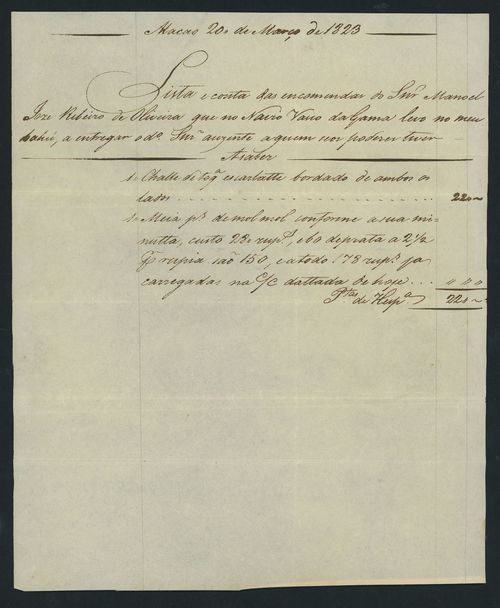 Macao 20 de Março de 1823
Lista e conta das encomendas do Snr. Manoel
Joze Ribeiro de Oliveira que no Navio Vasco da Gama levo no meu
bahú, a entregar o do. Snr. auzente a quem seos poderes tiver
A saber
1 Challe de escarlatte bordado de ambos os
lados 22
1 Meia ps. de molmol conforme a sua mi-
nutta, custo 28 rups., e 60 de prata a 2½
rupia são 150, e a todo 178 rups. ja
carregadas na C/C dattada de hoje " " "
Ptas. de Hespa. 22